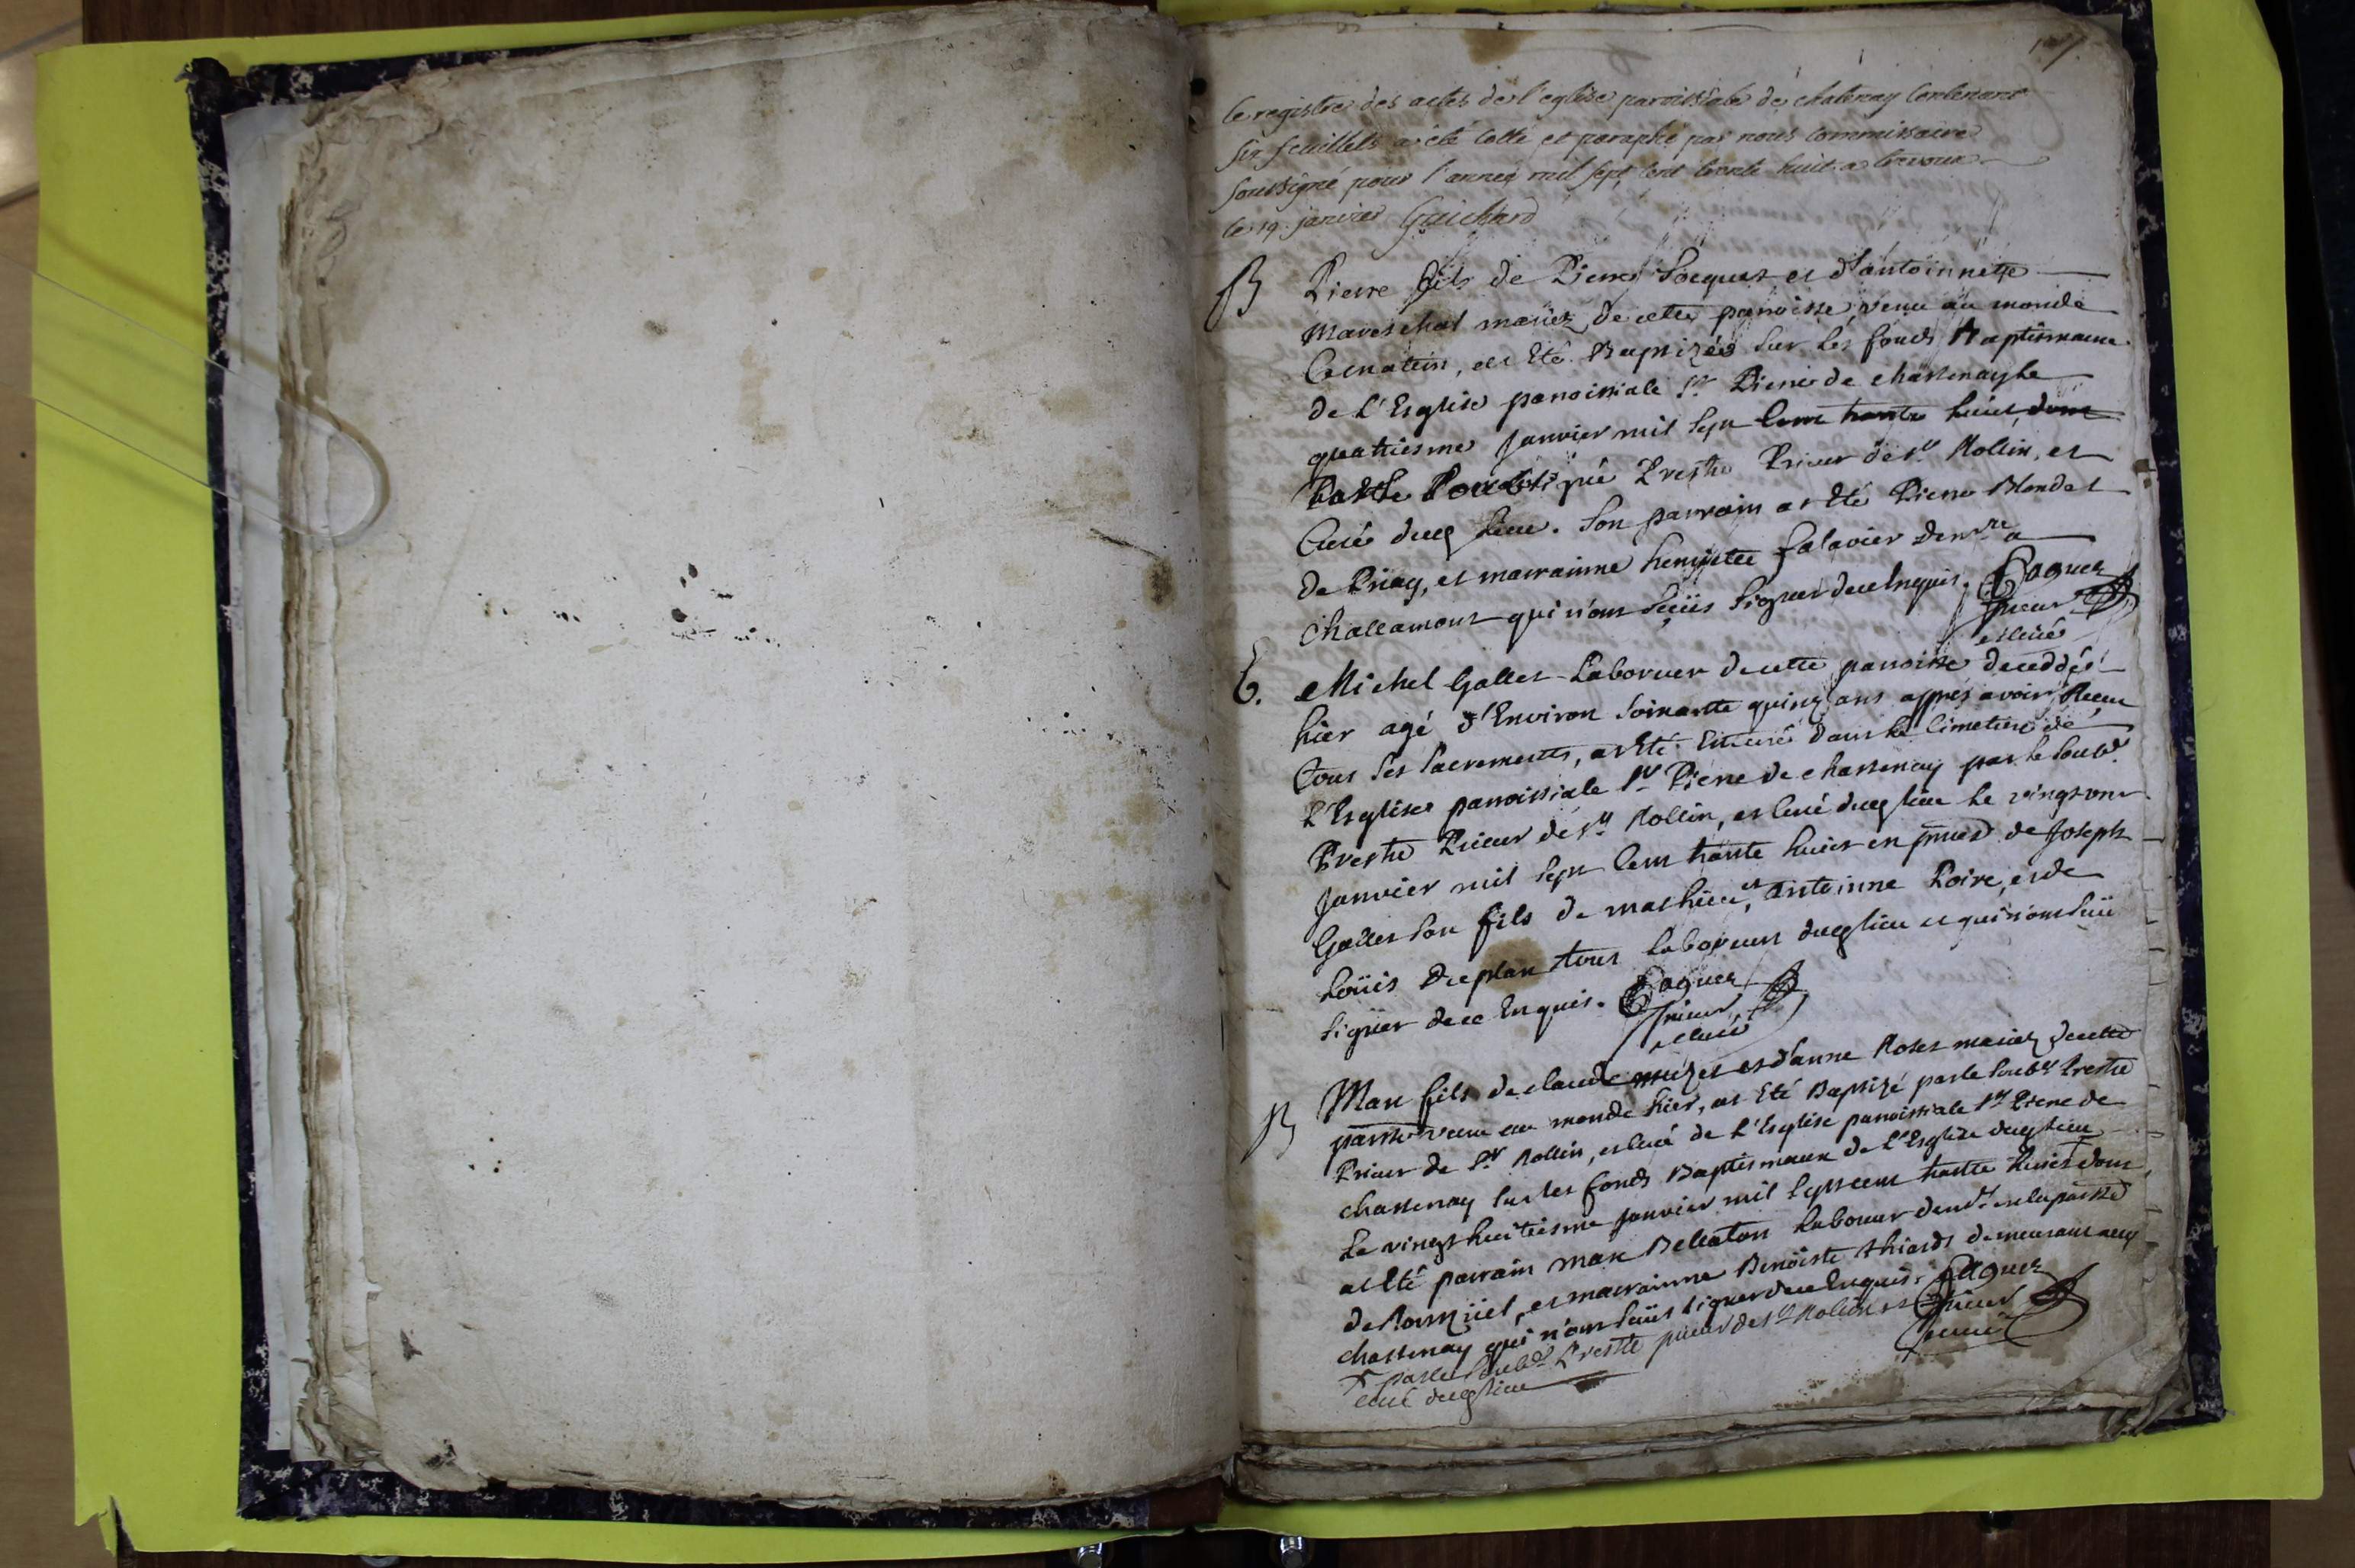 le registre des actes de l'eglise paroissiale de chatenay Contenant
six feuillets a été Cotté et paraphé par nous Commissaire
soussigné pour l'année mil sept cent trente huit a trevoux
le 19 janvier Guichard
B Pierre fils de Pierre Socquet et d'antoinnette
Mareschal mariez de cette paroisse, venu au monde
Ce matin, at Eté Baptizéé sur les fonds Baptismaux
de L'Esglise paroissiale St Pierre de chastenay Le
quatriesme Janvier mil sept Cent trante huict,
par Le Soubsigné Prestre Prieur de St Rollin, et
Curé ducq lieu. Son parrain at Eté Pierre Blondet
de Priay, et marrainne henriette falavier demte a
Challamont qui n'ont sçeüs signer de ce Enquis. Coquet
prieur
et curé
E. Michel Gallet Laboruer de cette paroisse deceddéé
hier agé d'Environ soixante quinz ans apprés avoir Receu
tous les sacrements, at Eté Enterré dans le Cimetiere de
L'Esglise paroissiale St Pierre de chastenay par le soubsé
Prestre Prieur de St Rollin, et curé ducq lieu Le vingt un
Janvier mil sept Cent trante huict en pnces de Joseph
Gallet son fils de mathieu, et antoinne Loire, et de
Loüis Duplan tous Laboreurs ducq lieu et qui n'ont sceü
signer de ce Enquis. Coquet
prieur
et curé
B Marc fils de claude muzet et d'anne Rolet mariez de cette
parrse venu au monde hier, at Eté Baptizé par le soubsé Prestre
Prieur de St Rollin, et curé de L'Esglise paroissiale St Pierre de
chastenay sur les fonds Baptismaux de L'Esglise ducq lieu
Le vingt huitiesme janvier mil sept cent trante huict dont
at Eté parrain marc Bellaton Laboureur demt en la parsse
de Ronzüel, et marrainne Benoiste thiards demeurant aud
chastenay qui n'ont sceüs signer de ce Enquis. Coquet
prieur
et curé
+ par le soubsé Prestre prieur de St Rollin et
curé ducq lieu